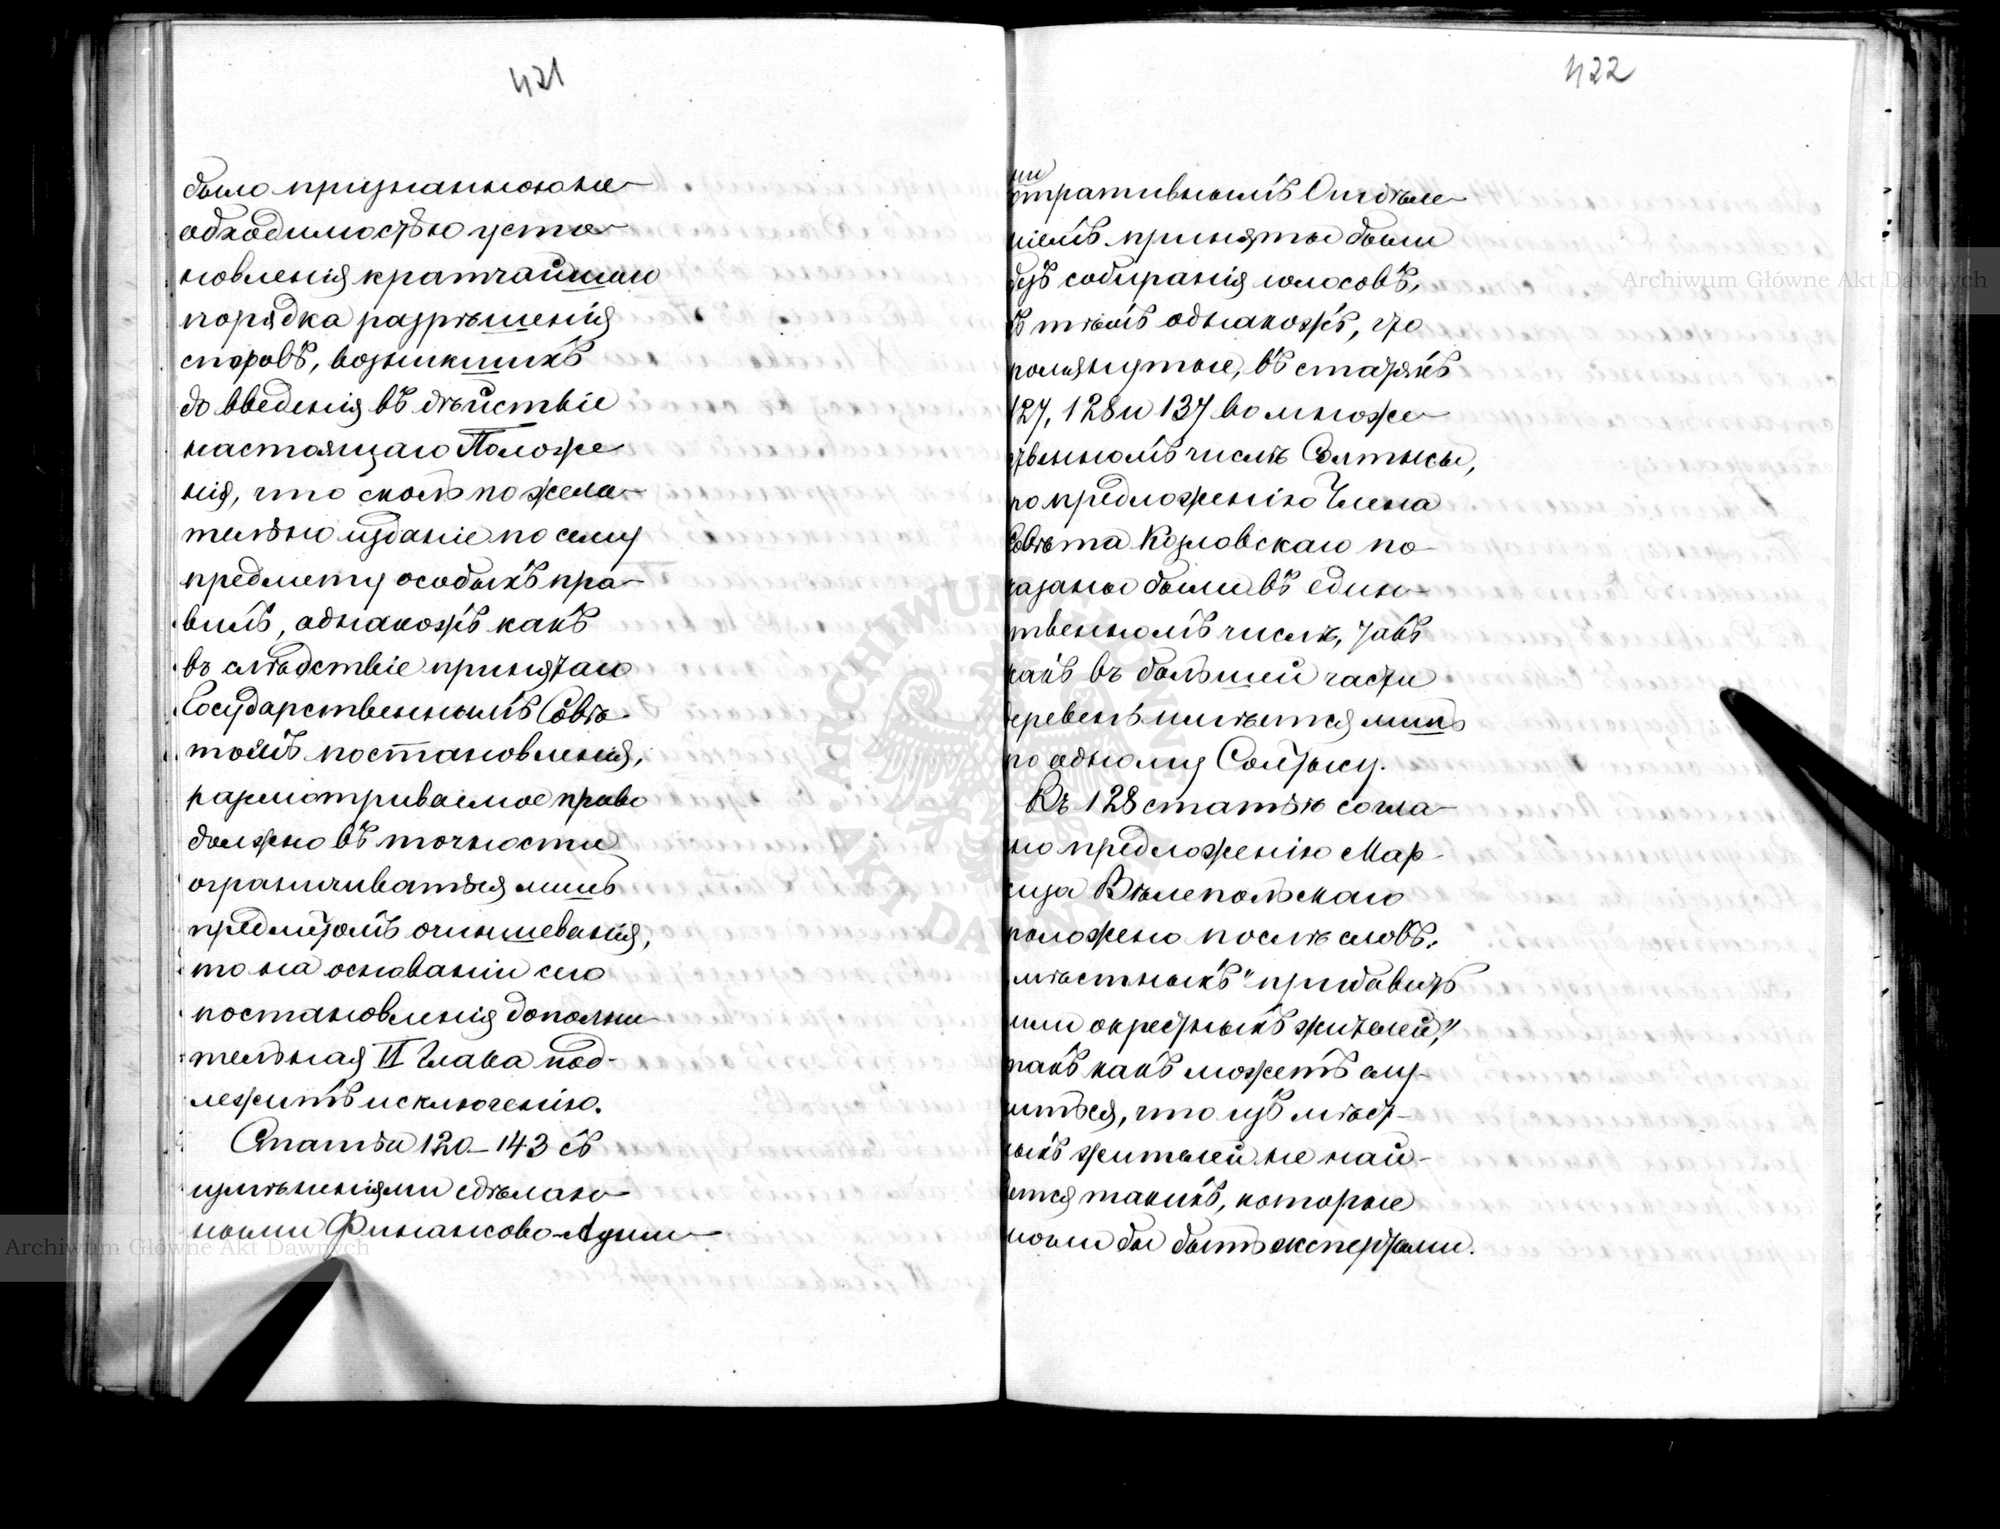 421
было признанною не-
обходимостью уста-
новленія кратчайшаго
порядка разрѣшенія
споровъ, возникшихъ
до введенія въ дѣйствіе
настоящаго Положе
нія, что сколь по жела-
тельно изданіе по сему
предмету особыхъ пра-
вилъ, однакожъ какъ
въ слѣдствіе принятаго
Государственнымъ Совѣ-
томъ постановленія,
разсматриваемое право
должно въ точности
ограничиваться лишь
предметомъ очиншеванія,
то на основаніи сего
постановленія дополни-
тельная II Глава под-
лежитъ исключенію.
Статьи 120–143 съ
измѣненіями сдѣлан-
ными Финансово-Адми-
422
ни
стративнымъ Отдѣле-
ніемъ приняты были
безъ собиранія голосовъ,
съ тѣмъ однакожъ, что
помянутые, въ статьяхъ
127, 128 и 137 во множе-
ственномъ числѣ Солтысы,
по предложенію Члена
Совѣта Козловскаго по-
казаны были въ един-
ственномъ числѣ, такъ
какъ въ большей части
деревень имѣется лишь
по одному Солтысу.
Въ 128 статью согла-
но предложенію Мар-
киза Вѣлепольскаго
положено послѣ словъ:
„мѣстныхъ" прибавить
или окрестныхъ жителей,"
такъ какъ можетъ слу-
читься, что изъ мѣст-
ныхъ жителей не най-
дется такихъ, которые
могли бы быть экспертами.
Archiwum Główne Akt Dawnych
Archiwum Główne Akt Dawnych
ARCHIWUM GŁÓWNE AKT DAWNYCH